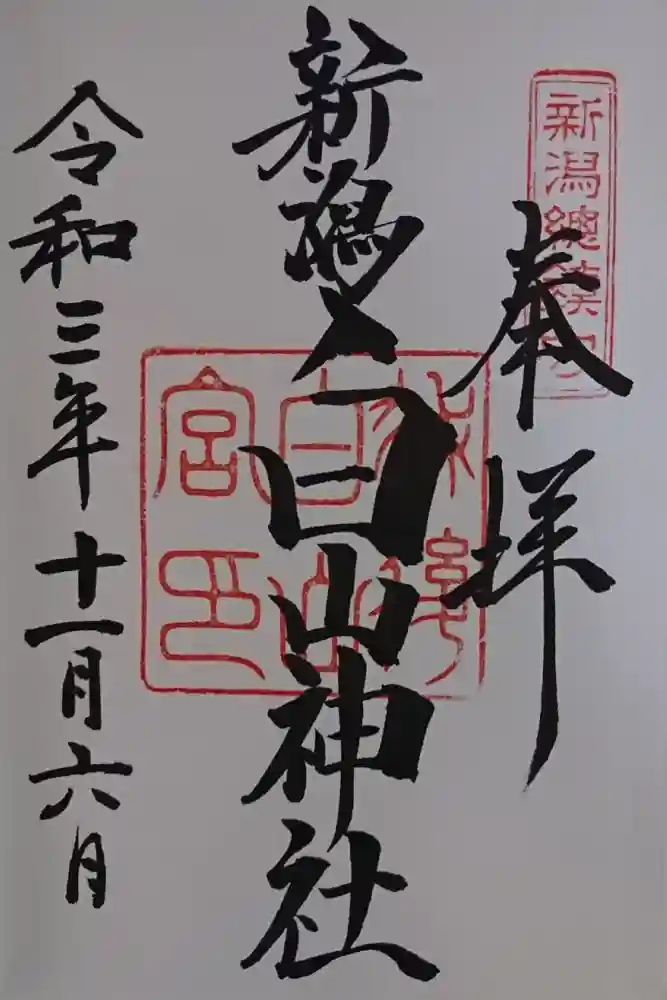 新潟總鎮守
奉拝
新潟白山神社
白山
宮印
令和三年十一月六日